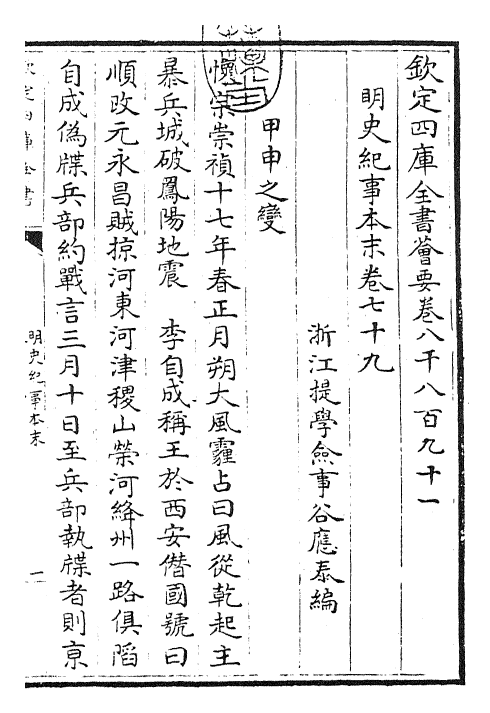 欽定四庫全書薈要卷八千八百九十一
明史紀事本末卷七十九
浙江提學僉事谷應泰編
甲申之變
懷宗崇禎十七年春正月朔大風霾占曰風從乾起主
暴兵城破鳳陽地震　李自成稱王於西安僭國號曰
順改元永昌賊掠河東河津稷山榮河絳州一路俱陷
自成偽牒兵部約戰言三月十日至兵部執牒者則京
欽定四庫全書
明史紀事本末
一